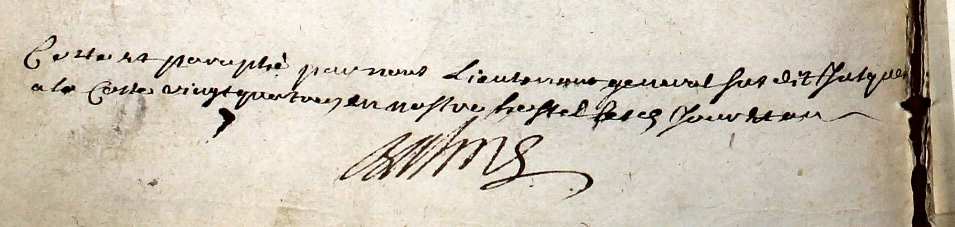 Cotte et paraphé par nous Lieutenant general sus dit Jusques
a la Cotte vingt quatre en nostre hostel les Jour et an